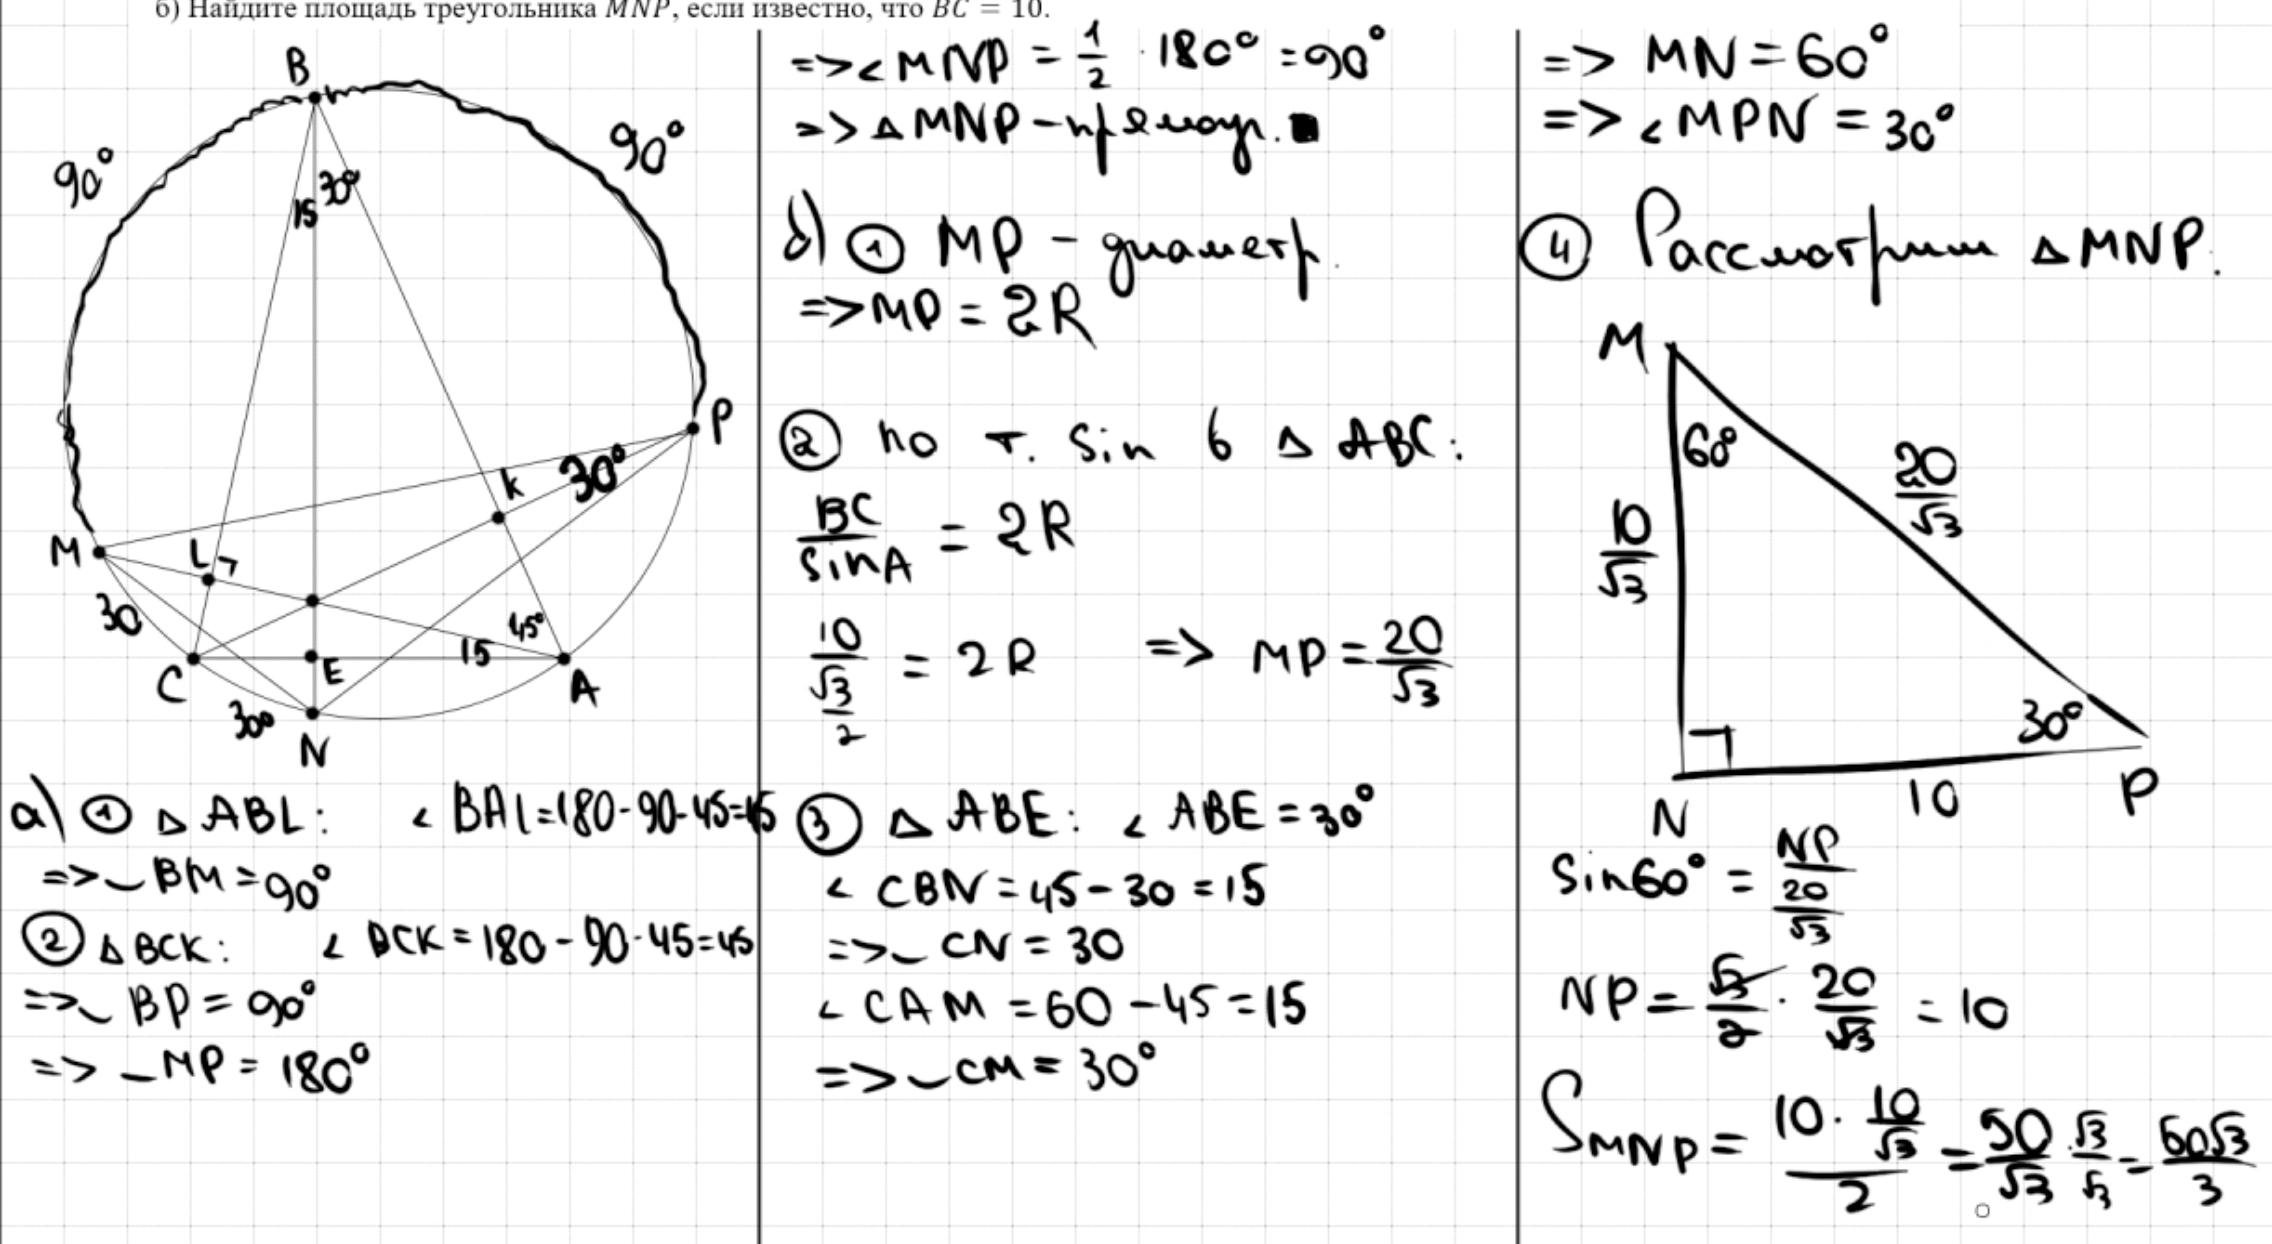 б) Найдите площадь треугольника MNP, если известно, что BC = 10.
B
90°
90°
15
30°
P
K
30°
M
L
30
45°
15
C
E
A
30°
N
а) ① △ ABL: ∠ BAL=180-90-45=45
=>◡ BM = 90°
② △ BCK: ∠ BCK = 180-90-45=45
=>◡ BP = 90°
=> ◡MP = 180°
=>∠MNP = 1/2 · 180° = 90°
=> △MNP - прямоуг. ■
б) ① MP - диаметр.
=>MP = 2R
② по т. sin в △ ABC:
BC/sinA = 2R
10/(√3/2) = 2R => MP = 20/√3
③ △ ABE: ∠ ABE = 30°
∠ CBN = 45 - 30 = 15
=>◡ CN = 30
∠ CAM = 60 - 45 = 15
=>◡CM = 30°
=> MN = 60°
=> ∠MPN = 30°
④ Рассмотрим △MNP.
M
60°
20/√3
10/√3
30°
N
10
P
sin60° = NP/(20/√3)
NP = √3/2 · 20/√3 = 10
S MNP = (10 · 10/√3)/2 = 50/√3 · √3/√3 = 50√3/3